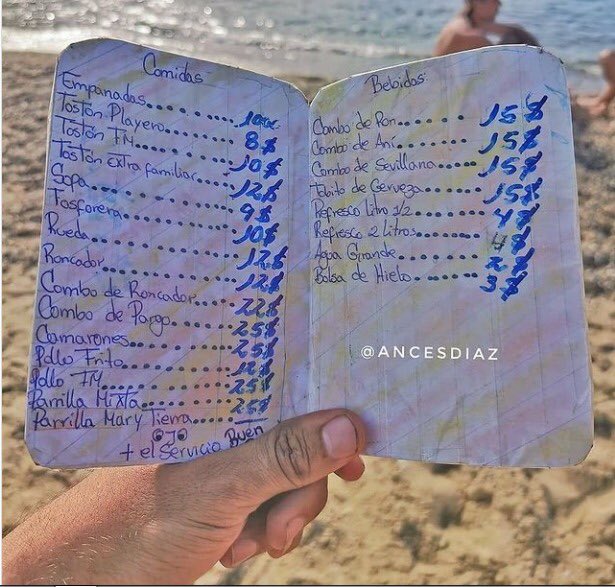 Comidas
Empanadas......
Tostón Playero...... 8$
Tostón FM...... 10$
Tostón extra familiar...... 12$
Sopa...... 9$
Fosforera...... 10$
Rueda...... 12$
Roncador...... 12$
Combo de Roncador...... 22$
Combo de Pargo...... 25$
Camarones...... 25$
Pollo Frito...... 12$
Pollo FM...... 25$
Parrilla Mixta...... 25$
Parrilla Mar y Tierra......
OJO
+ el Servicio Buen
Bebidas
Combo de Ron...... 15$
Combo de Ani...... 15$
Combo de Sevillana...... 15$
Tobito de Cerveza...... 15$
Refresco Litro 1/2...... 4$
Refresco 2 Litros...... 4$
Agua Grande...... 2$
Bolsa de Hielo...... 3$
@ANCESDIAZ